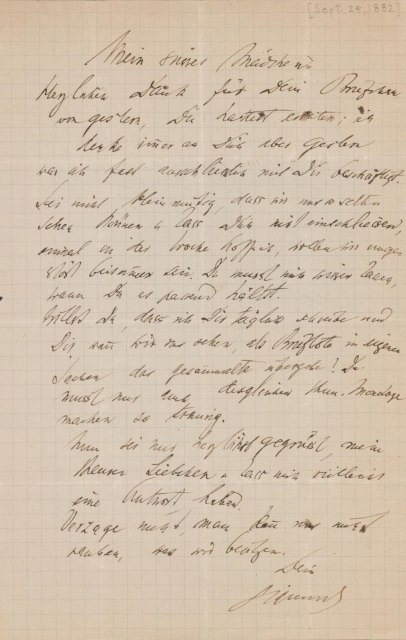 [Sept. 24, 1882]
Mein süsses Mädchen
Herzlichen Dank für Dein Briefchen
von gestern, Du hattest ; ich
denke immer an Dich aber gestern
war ich fast ausschließlich mit Dir beschäftigt.
Sei nicht kleinmütig, dass wir uns selten
sehen können u lass Dich nicht einschliessen,
einmal in der Woche hoffe ich, wollen wir
beisammen sein. Du musst mir immer sagen,
wann Du es passend hältst.
Willst Du, dass ich Dir täglich schreibe und
Dir wann wir uns sehen, als Briefbote in eigenen
Sachen das gesammelte übergebe? Du
musst mir uns desgleichen thun.
machen so
Nun sei mir herzlichst gegrüsst, mein
theures Liebchen u lass mich
eine Antwort haben.
Verzage nicht, man kann uns nicht
rauben, was wir besitzen.
Dein
Sigmund